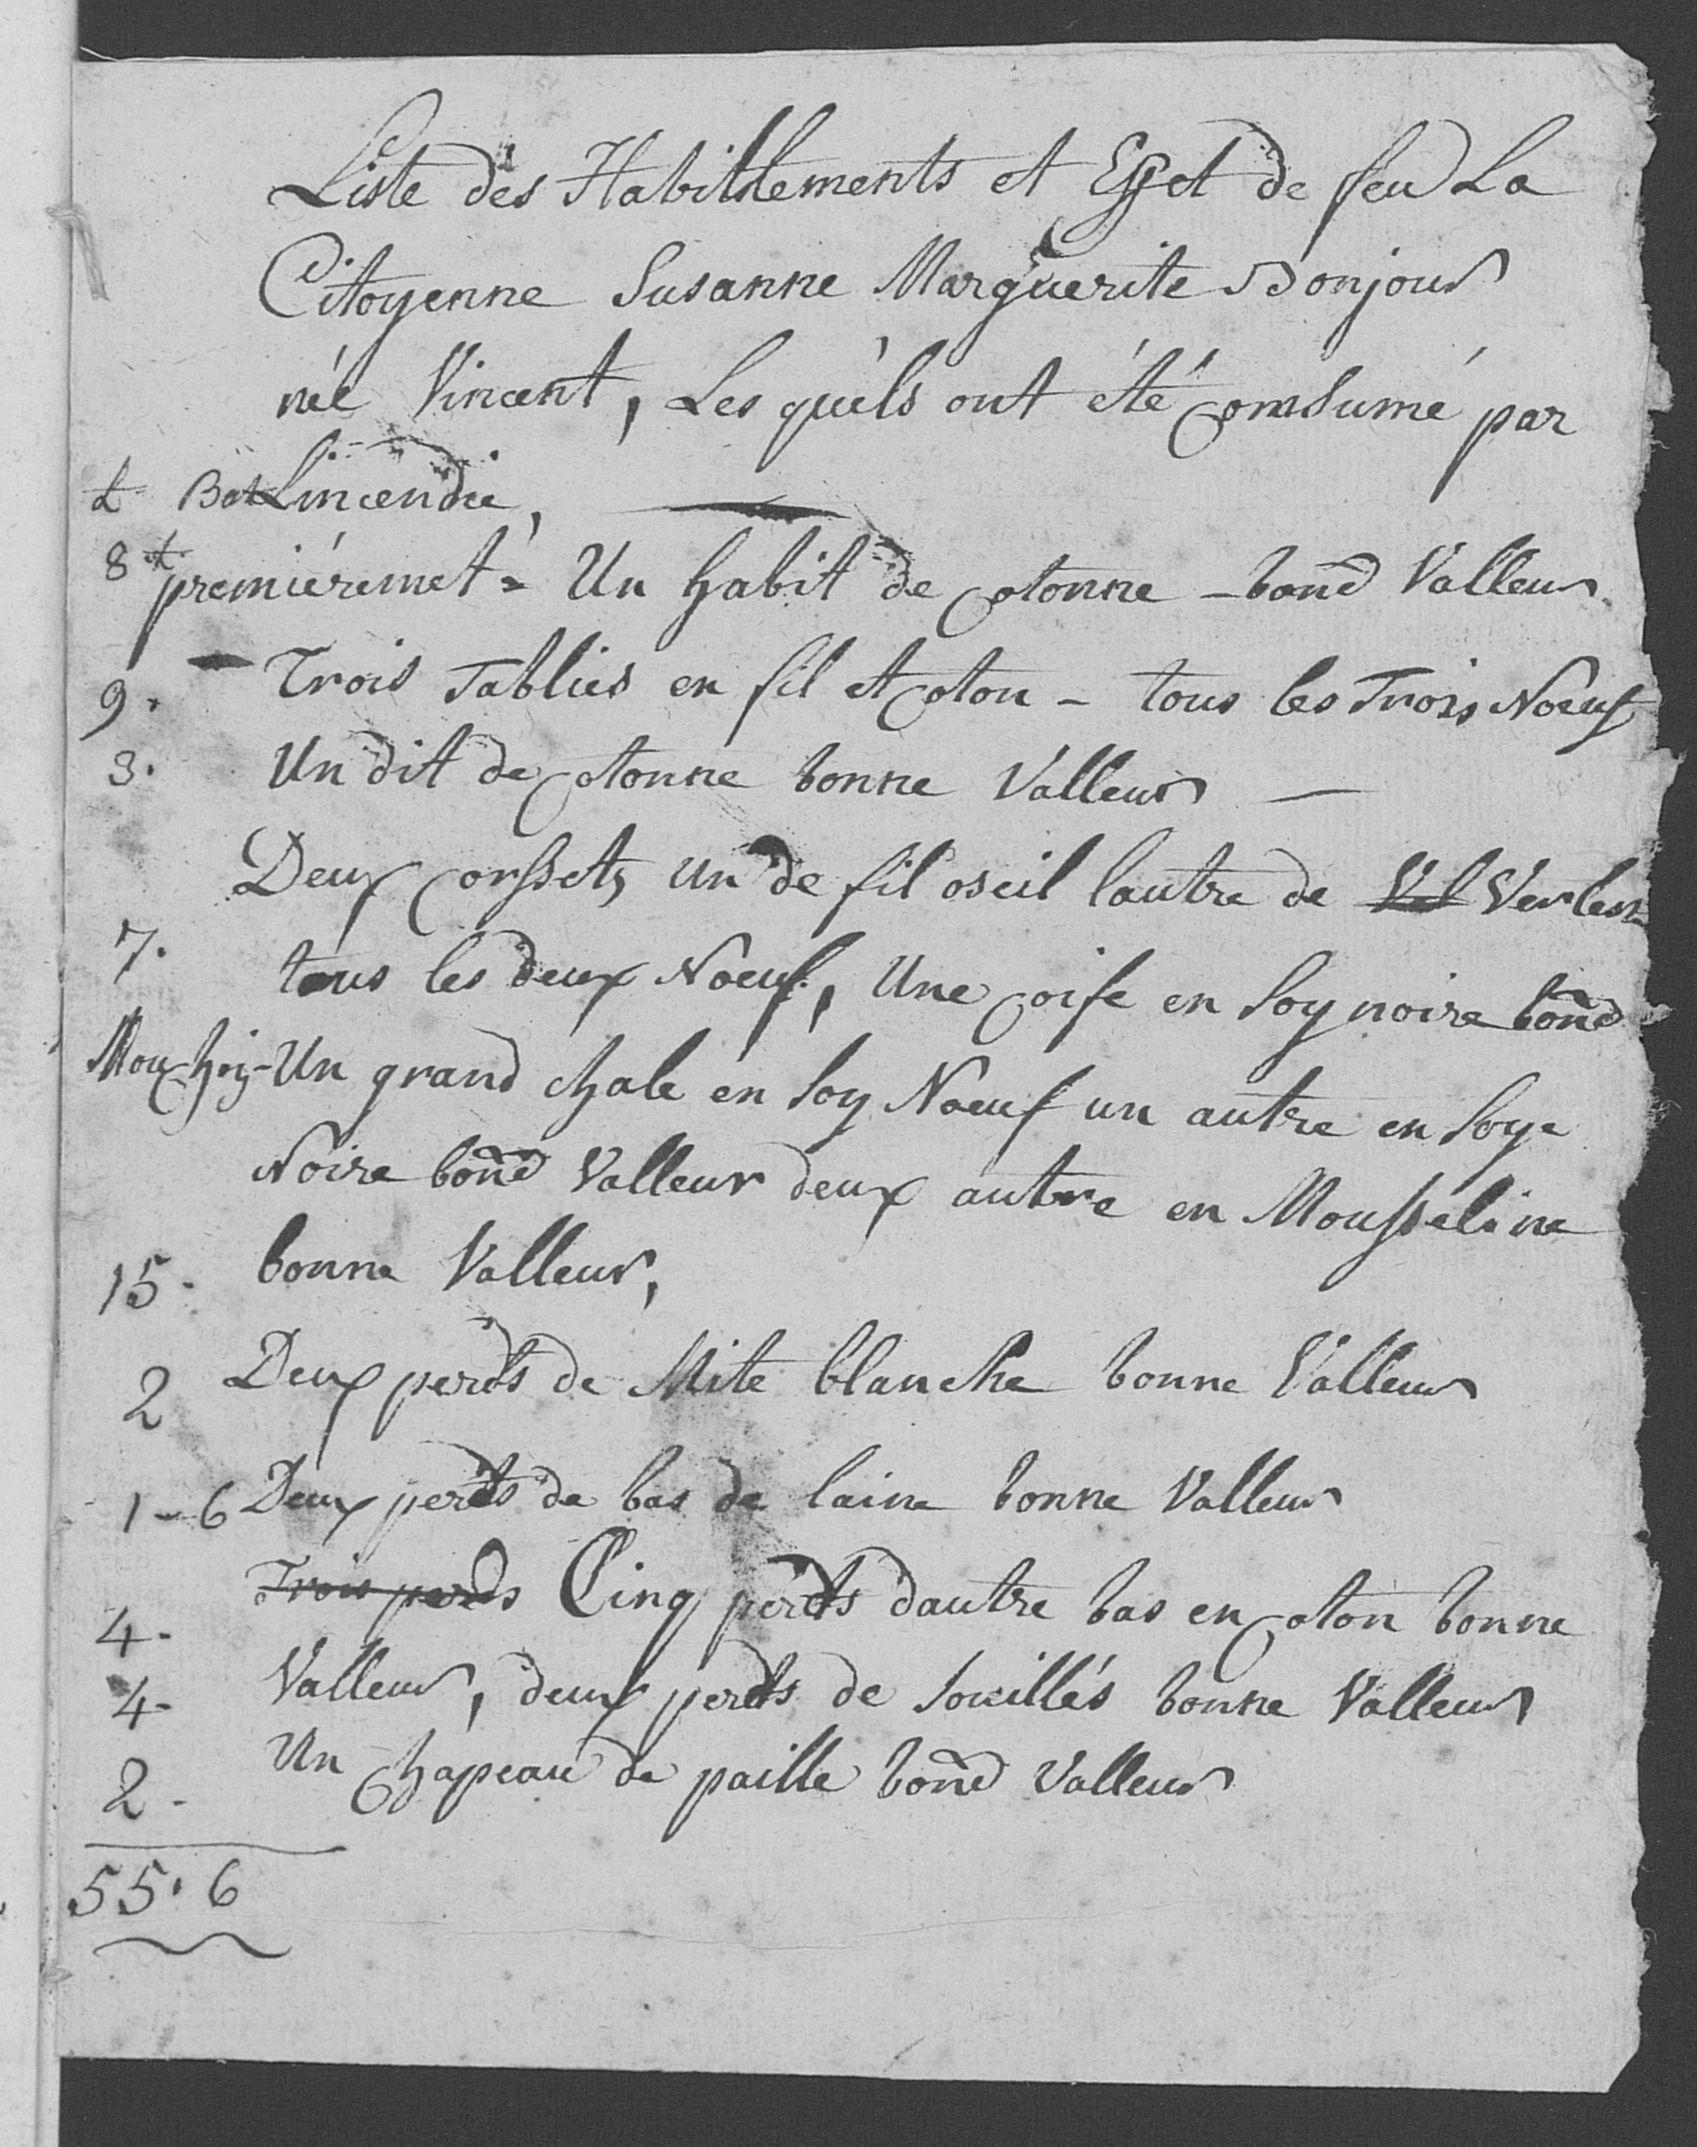 Liste des Habillements et Effet de feu La
Citoyenne Susanne Marguerite Bonjour
née Vincent, Les quèls ont été Comsumé par
L Bat Lincendie,
8 premiéremet = Un habit de Cotonne - bone Valleur
9. Trois Tablies en fil et Coton - tous les Trois Noeuf
3. Un dit de Cotonne bonne Valleur —
Deux Corssets, un de fil oseil lautre de Vel Verlest
7. tous les deux Noeuf, Une Coife en Soy noire bone
Mouchoij - Un grand Chale en Soy Noeuf un autre en Soye
Noire bone Valleur deux autre en Mousseline
15. bonne Valleur,
2 Deux perds de Mite blanche bonne Valleur
1-6 Deux perds de bas de laine bonne Valleur
4. Trois perds Cinq perds dautre bas en Coton bonne
4. Valleur, deux perds de Souillés bonne Valleur
2. Un Chapeau de paille bone Valleur
55. 6